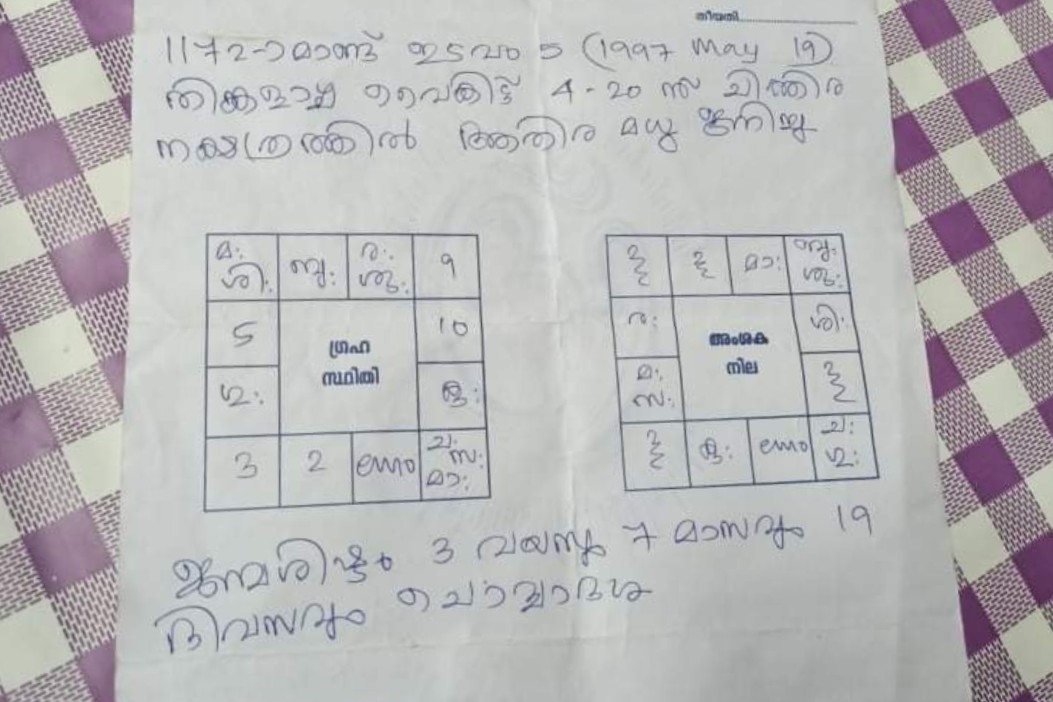 തീയതി
1172-ാമാണ്ട് ഇടവം 5 (1997 May 19)
തിങ്കളാഴ്ച വൈകിട്ട് 4-20 ന് ചിത്തിര
നക്ഷത്രത്തിൽ ആതിര മധു ജനിച്ചു
മ: ശി: ബു: ര: ശു: 9
5 10
ഗ്രഹ
സ്ഥിതി
3 2 ലഗ്നം ച: സ: മാ:
മാ: ബു: ശു:
ര: ശി:
അംശക
നില
മ: സ:
ലഗ്നം ച:
ജന്മശിഷ്ടം 3 വയസും 7 മാസവും 19
ദിവസവും ചൊവ്വാദശ